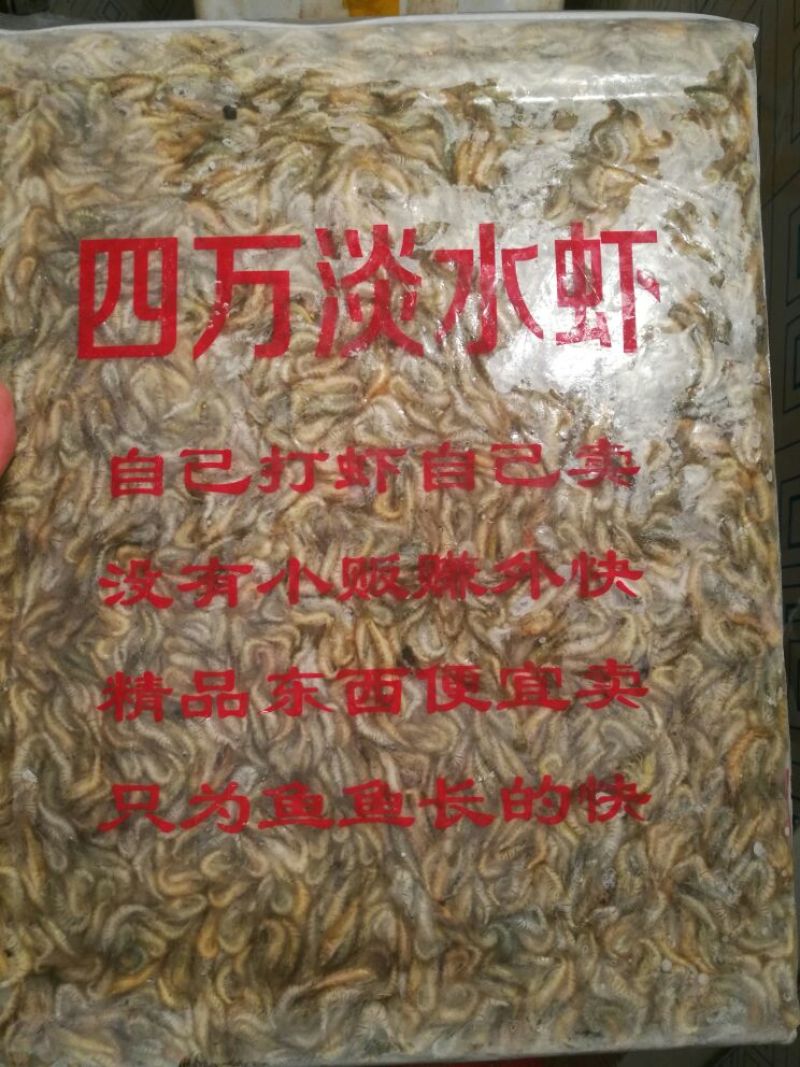 四万淡水虾
自己打虾自己卖
没有小贩赚外快
精品东西便宜卖
只为鱼鱼长的快